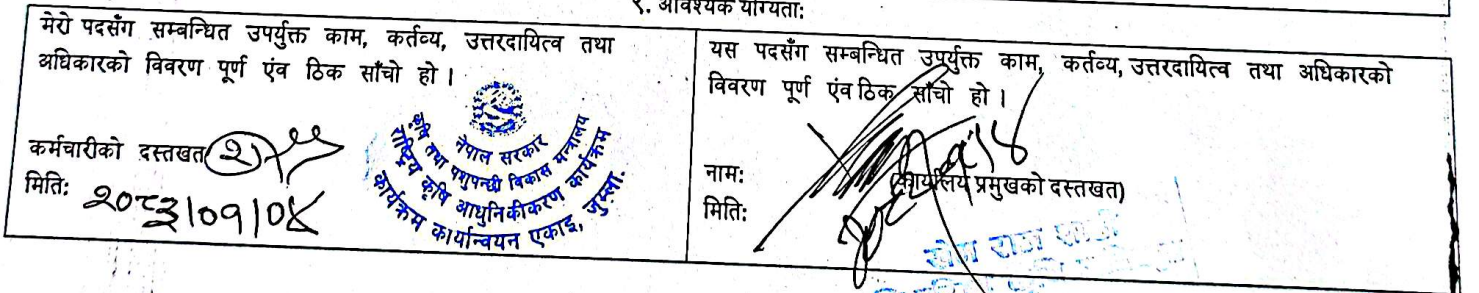 ९. आवश्यक योग्यता:
मेरो पदसँग सम्बन्धित उपर्युक्त काम, कर्तव्य, उत्तरदायित्व तथा
अधिकारको विवरण पूर्ण एंव ठिक साँचो हो ।
कर्मचारीको दस्तखत
मिति:
नेपाल सरकार
कृषि तथा पशुपन्छी विकास मन्त्रालय
राष्ट्रिय कृषि आधुनिकीकरण कार्यक्रम
कार्यक्रम कार्यान्वयन एकाइ, जुम्ला.
यस पदसँग सम्बन्धित उपर्युक्त काम, कर्तव्य, उत्तरदायित्व तथा अधिकारको
विवरण पूर्ण एंव ठिक साँचो हो ।
नाम:
(कार्यालय प्रमुखको दस्तखत)
मिति: